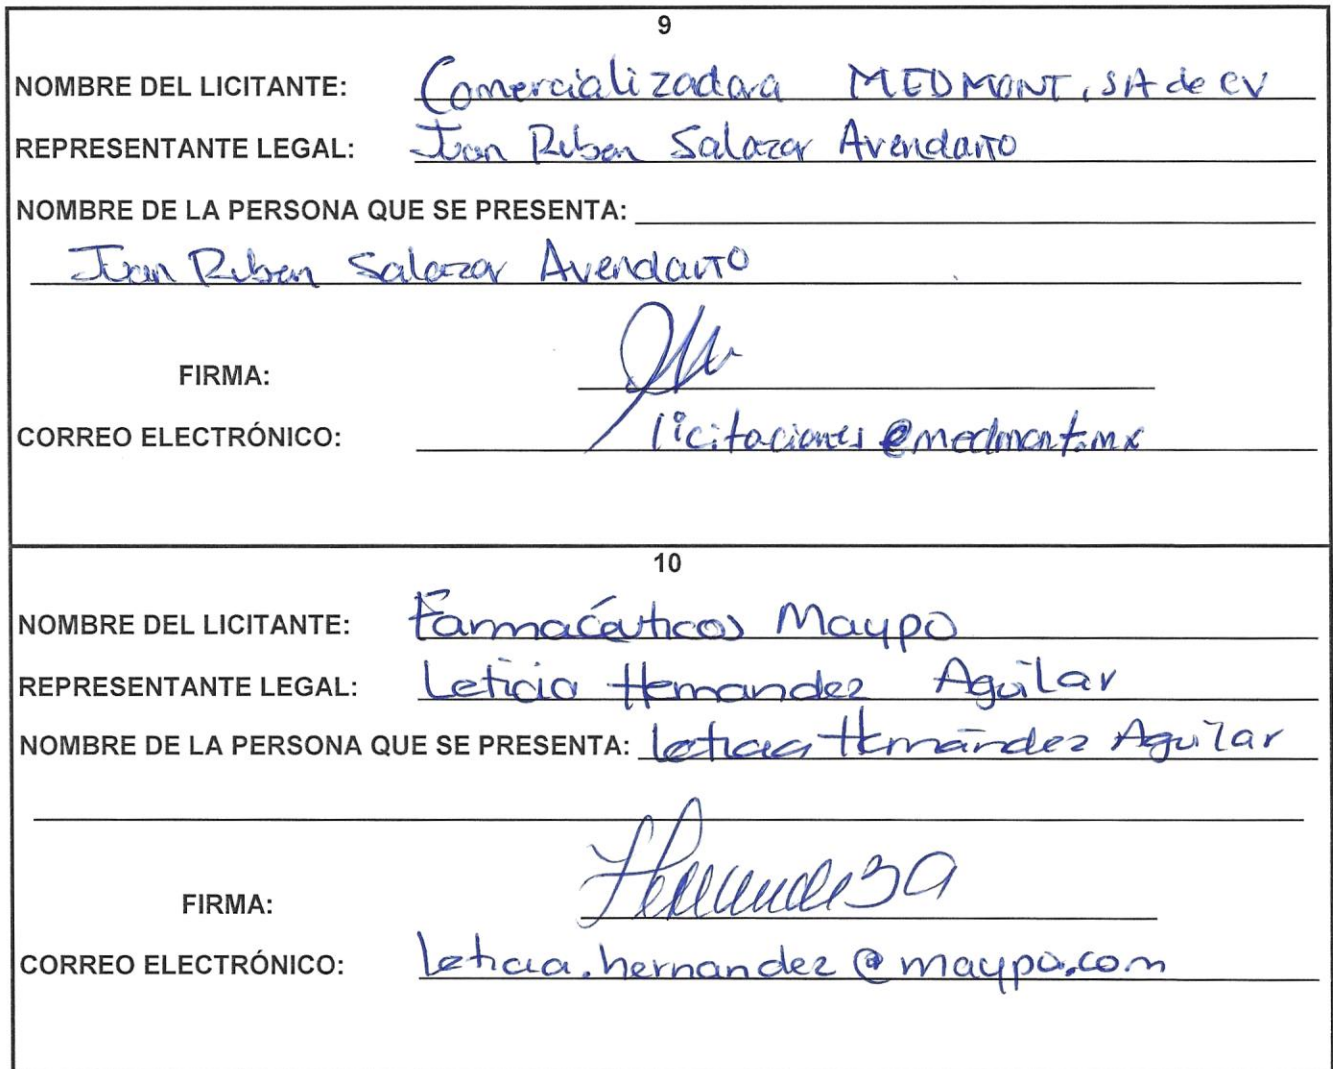 9
NOMBRE DEL LICITANTE: Comercializadora MEDMONT, SA de CV
REPRESENTANTE LEGAL: Juan Ruben Salazar Avendaño
NOMBRE DE LA PERSONA QUE SE PRESENTA:
Juan Ruben Salazar Avendaño
FIRMA:
CORREO ELECTRÓNICO: licitaciones@medmont.mx
10
NOMBRE DEL LICITANTE: Farmacéuticos Maypo
REPRESENTANTE LEGAL: Leticia Hernandez Aguilar
NOMBRE DE LA PERSONA QUE SE PRESENTA: Leticia Hernández Aguilar
FIRMA:
CORREO ELECTRÓNICO: leticia.hernandez@maypo.com